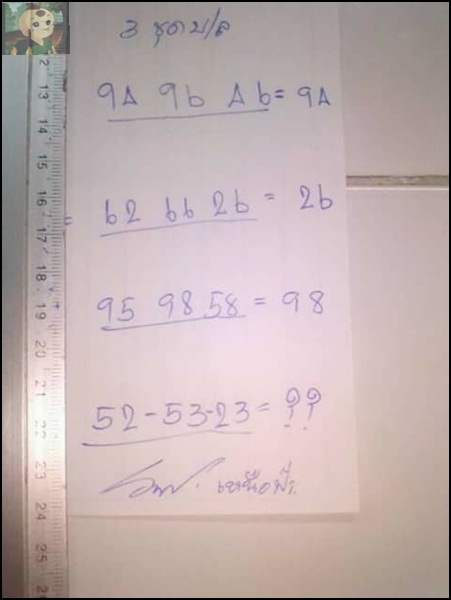 3 ชุดบ/ล
9A 9b Ab = 9A
b2 bb 2b = 2b
95 98 58 = 98
52-53-23 = ??
เหนือฟ้า
12
13
14
15
16
17
18
19
20
21
22
23
24
25